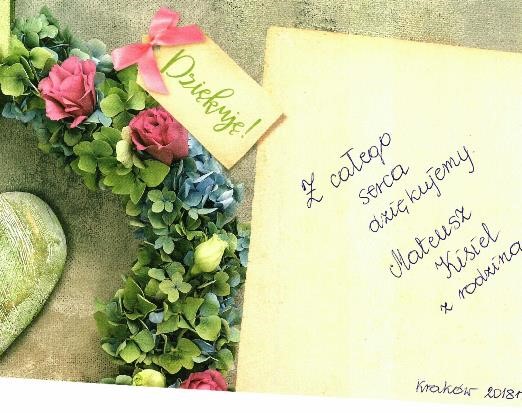 Dziękuję!
Z całego
serca
dziękujemy.
Mateusz
Kisiel
z rodziną
Kraków 2018r